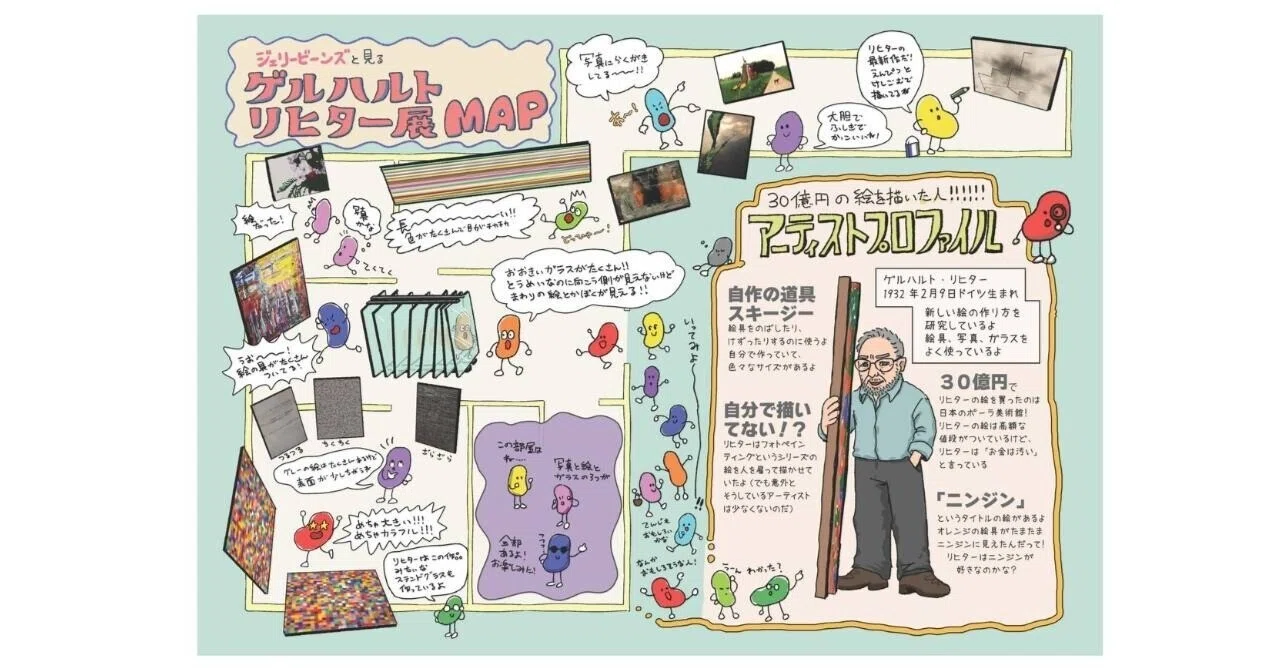 ジェリービーンズと見る
ゲルハルト
リヒター展 MAP
写真にらくがき
してる〜〜!!
あ〜!
リヒターの
最新作だ!
えんぴつと
けしごむで
描いてるね
大胆で
ふしぎで
かっこいいね!
絵だった!
写真
かな
てくてく
長〜〜〜〜い!!
色がたくさんで目がチカチカ
おおきいガラスがたくさん!!
とうめいなのに向こう側が見えないけど
まわりの絵とかぼくが見える!!
うお〜〜!
絵の具がたくさん
ついてる!
つるつる
ちくちく
ざらざら
グレーの絵はたくさんあるけど
表面が少しちがうね
めちゃ大きい!!!
めちゃカラフル!!!
リヒターはこの作品
みたいな
ステンドグラスも
作っているよ
この部屋は
ね……
写真と絵と
ガラスの3つが
全部
あるよ!
お楽しみに!
フフフ
いってみよ〜〜!!
てんじも
おもしろい
かな
なんか
おもしろそうな人!
うーん
わかった?
30億円の絵を描いた人!!!!!!
アーティストプロファイル
ゲルハルト・リヒター
1932年2月9日ドイツ生まれ
新しい絵の作り方を
研究しているよ
絵具、写真、ガラスを
よく使っているよ
自作の道具
スキージー
絵具をのばしたり、
けずったりするのに使うよ
自分で作っていて、
色々なサイズがあるよ
自分で描い
てない!?
リヒターはフォトペイン
ティングというシリーズの
絵を人を雇って描かせて
いたよ(でも意外と
そうしているアーティスト
は少なくないのだ)
30億円で
リヒターの絵を買ったのは
日本のポーラ美術館!
リヒターの絵は高額な
値段がついているけど、
リヒターは「お金は汚い」
と言っている
「ニンジン」
というタイトルの絵があるよ
オレンジの絵具がたまたま
ニンジンに見えたんだって!
リヒターはニンジンが
好きなのかな?